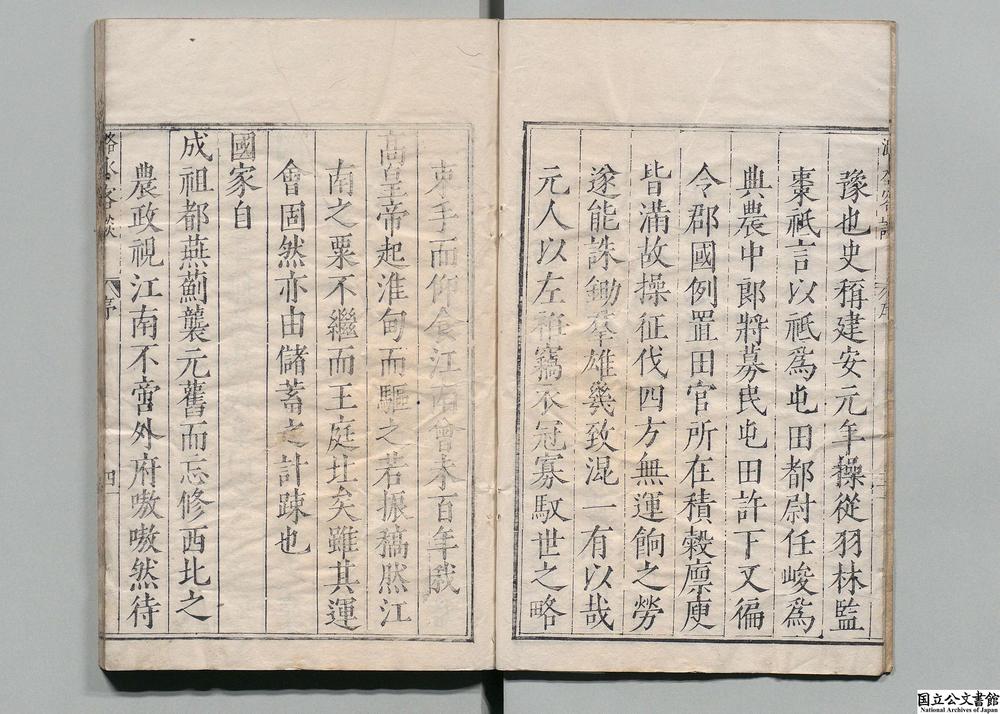 豫也史稱建安元年操從羽林監
棗祗言以祗爲屯田都尉任峻爲
典農中郎將募民屯田許下又徧
令郡國例置田官所在積穀廪庾
皆滿故操征伐四方無運餉之勞
遂能誅鋤羣雄幾致混一有以哉
元人以左袵竊衣冠寡馭世之略
束手而仰食江南曾未百年我
高皇帝起淮甸而驅之若振槁然江
南之粟不繼而王庭北矣雖其運
會固然亦由儲蓄之計踈也
國家自
成祖都燕薊襲元舊而忘修西北之
農政視江南不啻外府嗷嗷然待
潞水客談
序
四
国立公文書館
National Archives of Japan